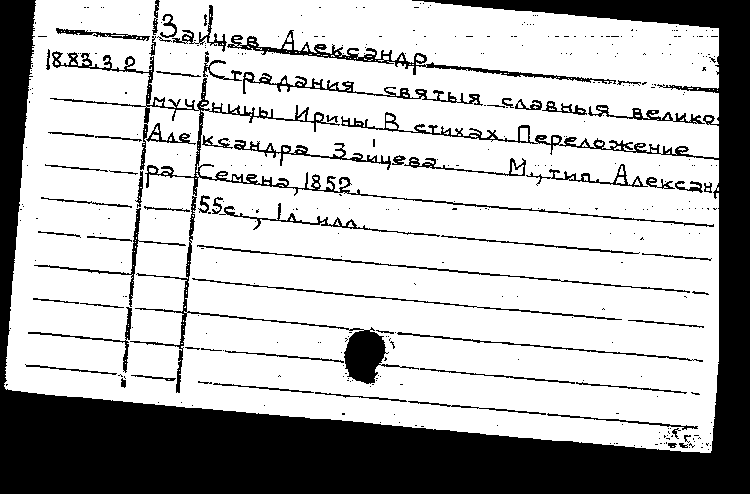 Зайцев, Александр.
18.83.3.2 Страдания святыя славныя велико-
мученицы Ирины. В стихах. Переложение
Александра Зайцева. М., тип. Александ
ра Семена, 1852.
55с.; 1л. илл.